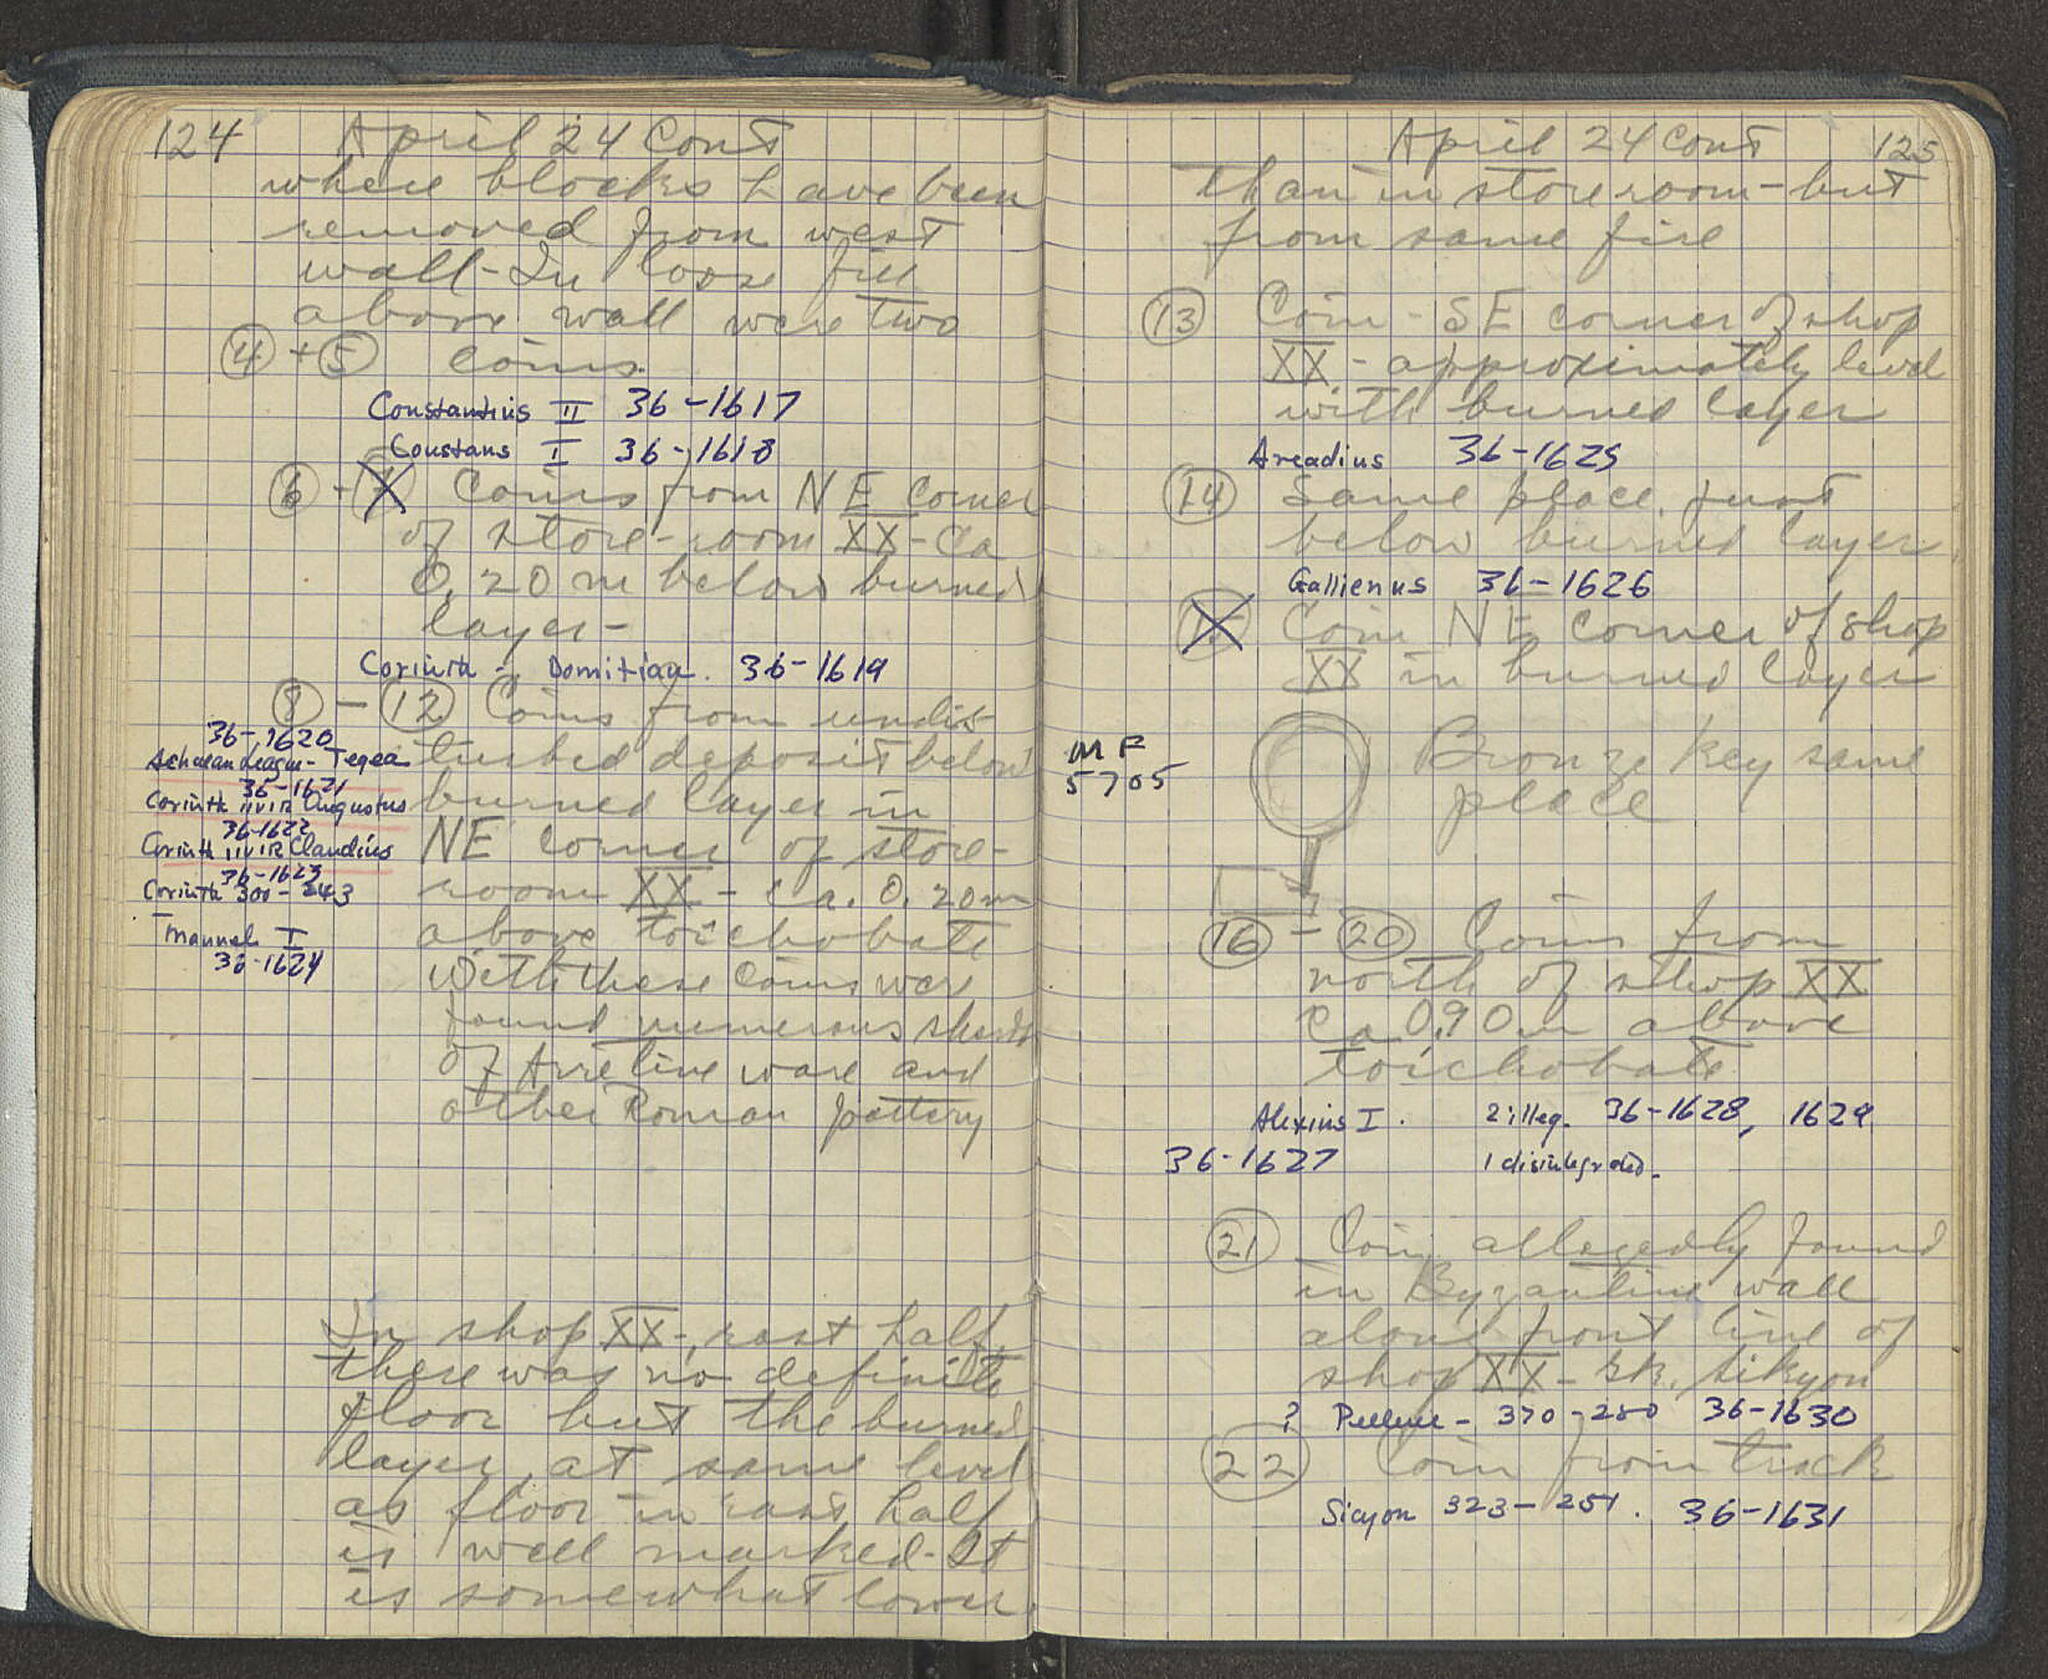 124 April 24 Cont
where blocks have been
removed from west
wall - In loose fill
above wall were two
④ + ⑤ coins.
Constantius II 36-1617
Constans I 36-1618
⑥ + ⑦ Coins from NE corner
of store-room XX - Ca
0.20 m below burned
layer -
Corinth - Domitian. 36-1619
⑧ - ⑫ Coins from undis
turbed deposit below
burned layer in
NE corner of store-
room XX - ca. 0.20m
above toichobate
With these coins were
found numerous sherds
of Arretine ware and
other Roman pottery
36-1620
Achaean League - Tegea
36-1621
Corinth IIVIR Augustus
36-1622
Corinth IIVIR Claudius
36-1623
Corinth 300-243
Manuel I
36-1624
In shop XX, east half,
there was no definite
floor but the burned
layer, at same level
as floor in east half
is well marked. It
is somewhat lower
April 24 Cont 125
than in storeroom - but
from same fire
⑬ Coin - SE corner of shop
XX - approximately level
with burned layer
Arcadius 36-1625
⑭ Same place, just
below burned layer.
Gallienus 36-1626
⑮ Coin NE corner of shop
XX in burned layer
MF
5705
Bronze key same
place
⑯ - ⑳ Coins from
north of shop XX
Ca 0.90m above
toichobate
Alexius I. 2 illeg. 36-1628, 1629
36-1627 1 disintegrated.
㉑ Coin allegedly found
in Byzantine wall
along front line of
shop XX - Gk. Sikyon
? Pellene - 370-280 36-1630
㉒ Coin from track
Sicyon 323-251. 36-1631